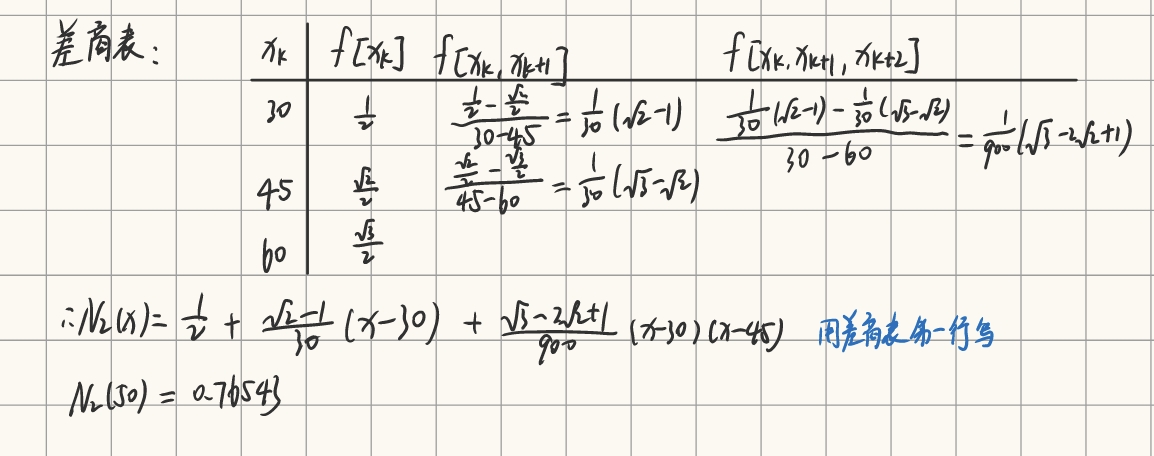 差商表： xₖ f[xₖ] f[xₖ, xₖ₊₁] f[xₖ, xₖ₊₁, xₖ₊₂]
30 1/2 (1/2 - √2/2)/(30-45) = 1/30 (√2-1) (1/30 (√2-1) - 1/30 (√3-√2))/(30-60) = 1/900 (√3-2√2+1)
45 √2/2 (√2/2 - √3/2)/(45-60) = 1/30 (√3-√2)
60 √3/2
∴N₂(x)= 1/2 + (√2-1)/30 (x-30) + (√3-2√2+1)/900 (x-30)(x-45) 用差商表第一行写
N₂(50) = 0.76543